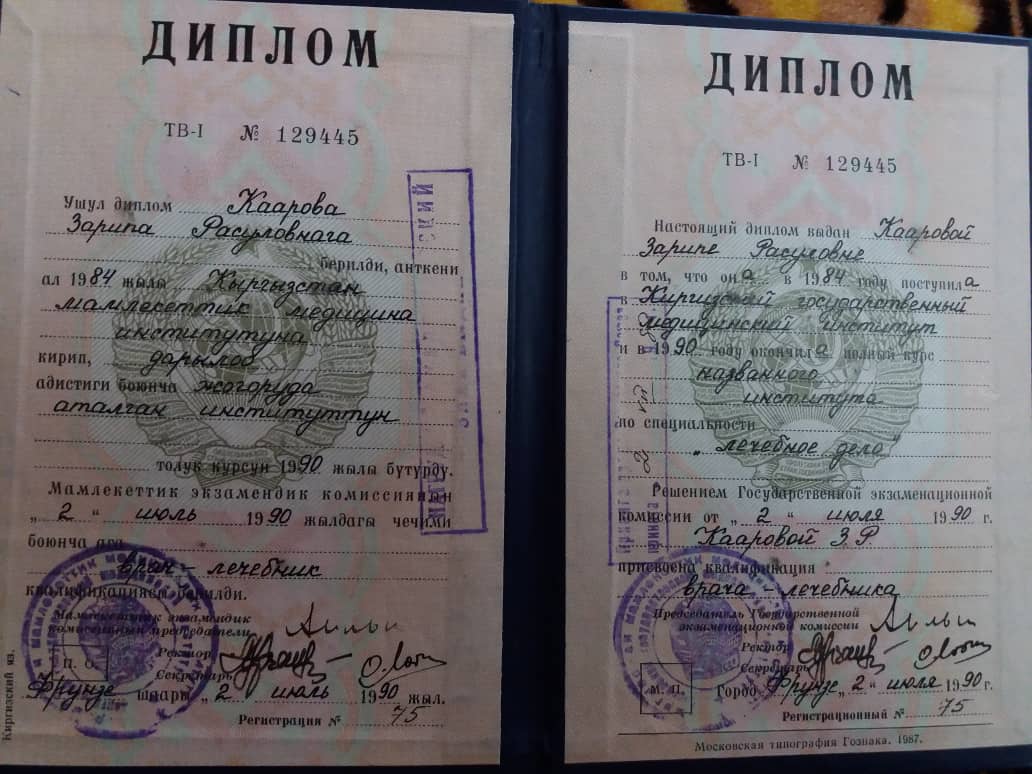 ДИПЛОМ
ТВ-I № 129445
Ушул диплом Каарова
Зарипа Расуловнага
берилди, анткени
ал 1984 жылы Кыргызстан
мамлекеттик медицина
институтуна
кирип, дарылоо
адистиги боюнча жогоруда
аталган институттун
толук курсун 1990 жылы бүтүрдү.
Мамлекеттик экзамендик комиссиянын
„2“ июль 1990 жылдагы чечими
боюнча ага
врач-лечебник
квалификациясы берилди.
Мамлекеттик экзамендик
комиссиянын председатели
Ректор
Секретарь
П. О.
Фрунзе шаары „2 июль 1990 жыл.
Регистрация № 75
Киргизский яз.
ДИПЛОМ
ТВ-I № 129445
Настоящий диплом выдан Кааровой
Зарипе Расуловне
в том, что она в 1984 году поступила
в Киргизский государственный
медицинский институт
и в 1990 году окончила полный курс
названного
института
по специальности
„лечебное дело“
Решением Государственной экзаменационной
комиссии от „2“ июля 1990 г.
Кааровой З.Р.
присвоена квалификация
врача-лечебника
Председатель Государственной
экзаменационной комиссии
Ректор
Секретарь
М. П.
Город Фрунзе „2“ июля 1990 г.
Регистрационный № 75
Московская типография Гознака. 1987.